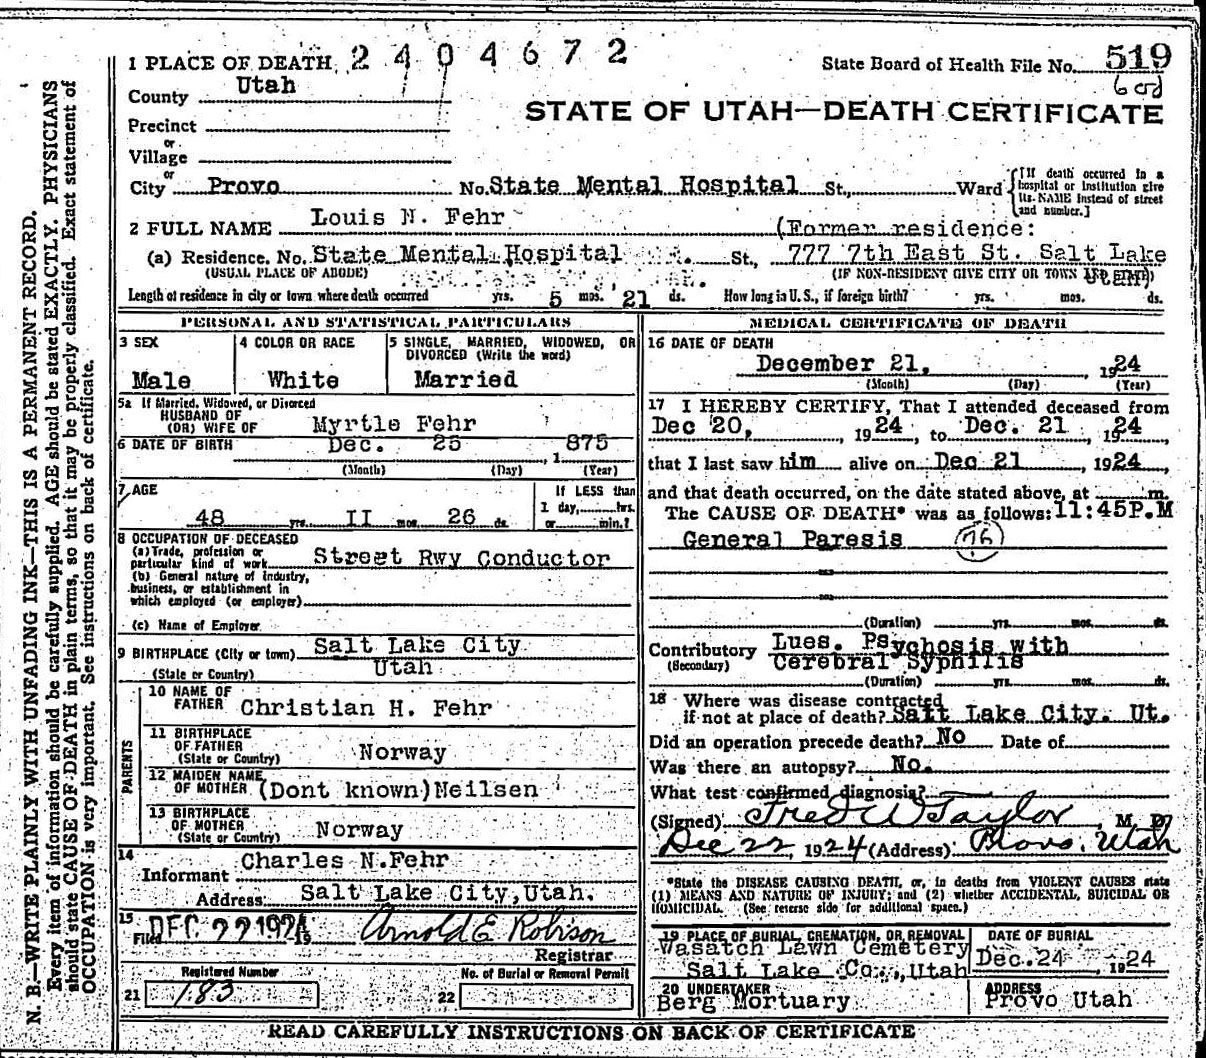 2404672
1 PLACE OF DEATH
State Board of Health File No. 519
County Utah
STATE OF UTAH—DEATH CERTIFICATE
Precinct
or
Village
or
City Provo No. State Mental Hospital St., Ward
[If death occurred in a
hospital or institution give
its NAME instead of street
and number.]
2 FULL NAME Louis N. Fehr
(Former residence:
(a) Residence. No. State Mental Hospital St., 777 7th East St. Salt Lake
(USUAL PLACE OF ABODE) (IF NON-RESIDENT GIVE CITY OR TOWN AND STATE) Utah)
Length of residence in city or town where death occurred yrs. 5 mos. 21 ds. How long in U. S., if foreign birth? yrs. mos. ds.
PERSONAL AND STATISTICAL PARTICULARS
3 SEX
Male
4 COLOR OR RACE
White
5 SINGLE, MARRIED, WIDOWED, OR
DIVORCED (Write the word)
Married
5a If Married, Widowed, or Divorced
HUSBAND OF
(OR) WIFE OF Myrtle Fehr
6 DATE OF BIRTH Dec. 25 1875
(Month) (Day) (Year)
7 AGE
48 yrs. II mos. 26 ds.
If LESS than
1 day, hrs.
or min.?
8 OCCUPATION OF DECEASED
(a) Trade, profession or
particular kind of work Street Rwy Conductor
(b) General nature of industry,
business, or establishment in
which employed (or employer)
(c) Name of Employer
9 BIRTHPLACE (City or town) Salt Lake City
(State or Country) Utah
PARENTS
10 NAME OF
FATHER Christian H. Fehr
11 BIRTHPLACE
OF FATHER
(State or Country) Norway
12 MAIDEN NAME
OF MOTHER (Dont known) Neilsen
13 BIRTHPLACE
OF MOTHER
(State or Country) Norway
14
Informant Charles N. Fehr
Address Salt Lake City, Utah.
15
Filed DEC 22 1924 19 Arnold E Robison
Registrar
Registered Number
21 183
No. of Burial or Removal Permit
22
MEDICAL CERTIFICATE OF DEATH
16 DATE OF DEATH
December 21. 1924
(Month) (Day) (Year)
17 I HEREBY CERTIFY, That I attended deceased from
Dec 20, 1924, to Dec. 21, 1924,
that I last saw him alive on Dec 21, 1924,
and that death occurred, on the date stated above, at m.
The CAUSE OF DEATH* was as follows: 11:45P.M
General Paresis 76
(Duration) yrs. mos. ds.
Contributory Lues. Psychosis with
(Secondary) Cerebral Syphilis
(Duration) yrs. mos. ds.
18 Where was disease contracted
if not at place of death? Salt Lake City. Ut.
Did an operation precede death? No Date of
Was there an autopsy? No.
What test confirmed diagnosis?
(Signed) Fred W Taylor, M. D.
Dec 22, 1924 (Address) Provo. Utah
*State the DISEASE CAUSING DEATH, or, in deaths from VIOLENT CAUSES state
(1) MEANS AND NATURE OF INJURY; and (2) whether ACCIDENTAL, SUICIDAL OR
HOMICIDAL. (See reverse side for additional space.)
19 PLACE OF BURIAL, CREMATION, OR REMOVAL
Wasatch Lawn Cemetery
Salt Lake Co., Utah
DATE OF BURIAL
Dec. 24, 1924
20 UNDERTAKER
Berg Mortuary
ADDRESS
Provo Utah
READ CAREFULLY INSTRUCTIONS ON BACK OF CERTIFICATE
N. B.—WRITE PLAINLY WITH UNFADING INK—THIS IS A PERMANENT RECORD.
Every item of information should be carefully supplied. AGE should be stated EXACTLY. PHYSICIANS
should state CAUSE OF DEATH in plain terms, so that it may be properly classified. Exact statement of
OCCUPATION is very important. See instructions on back of certificate.